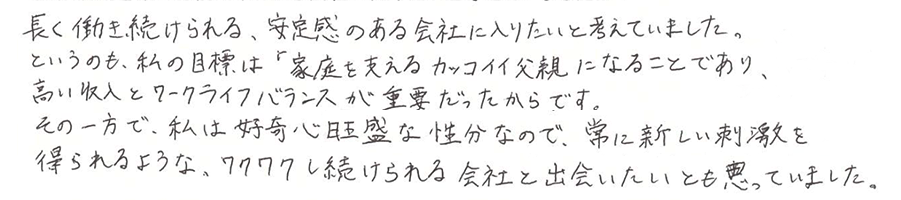 長く働き続けられる、安定感のある会社に入りたいと考えていました。
というのも、私の目標は「家庭を支えるカッコイイ父親になることであり、
高い収入とワークライフバランスが重要だったからです。
その一方で、私は好奇心旺盛な性分なので、常に新しい刺激を
得られるような、ワクワクし続けられる会社と出会いたいとも思っていました。